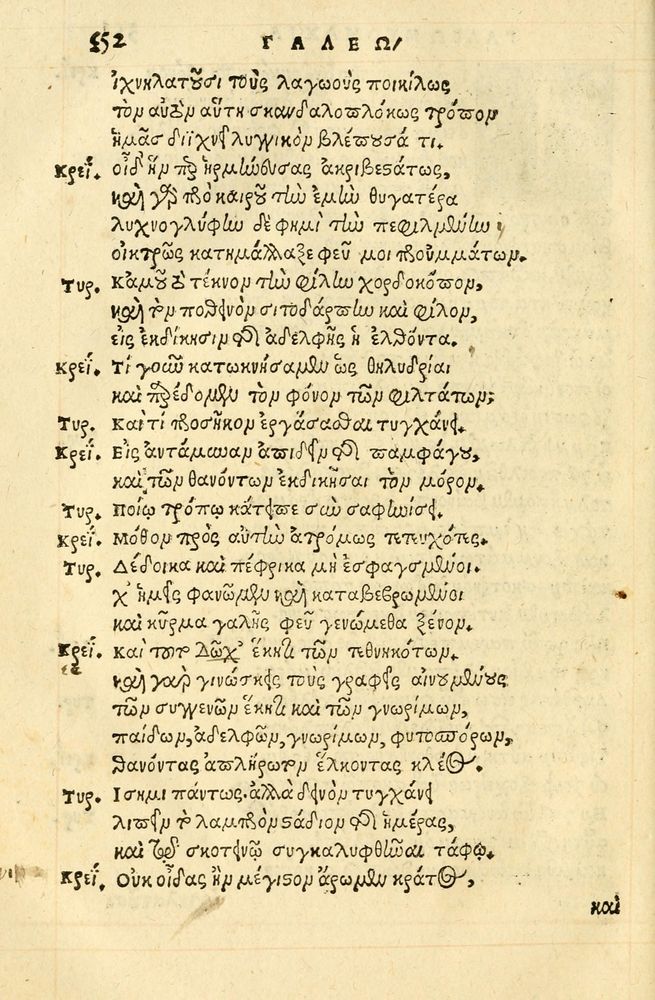 552 ΓΑΛΕΩ/
ἰχνηλατοῦσι τοὺς λαγωοὺς ποικίλως
τὸν αὐτὸν αὕτη σκανδαλοπλόκως τρόπον
ἡμᾶς διϊχνεῖ λυγγικὸν βλέπουσά τι.
Κρεΐ. οἶδ' ἣν παρηρμήνθυσας ἀκριβεστάτως,
καὶ γὰρ πρὸ καιροῦ τὴν ἐμὴν θυγατέρα
λυχνογλύφην δέ φημι τὴν πεφιλμένην
οἰκτρῶς κατημάλλαξε φεῦ μοι προὐμμάτων.
Τυρ. Κἀμοῦ δὲ τέκνον τὴν φίλην χορδοκόπον,
καὶ τὸν ποθεινὸν σιτοδάρπτην καὶ φίλον,
εἰς ἐκδίκησιν τῆς ἀδελφῆς ἢ ἐλθόντα.
Κρεΐ. Τί γοῦν κατωκνήσαμεν ὡς θηλυδρίαι
καὶ παρέδομεν τὸν φόνον τῶν φιλτάτων;
Τυρ. Καὶ τί προσῆκον ἐργάσασθαι τυγχάνει.
Κρεΐ. Εἰς ἀντάμυναν ἀπιδεῖν τῆς παμφάγου,
καὶ τῶν θανόντων ἐκδικῆσαι τὸν μόρον.
Τυρ. Ποίῳ τρόπῳ κάτειπε σὺν σαφηνίσει.
Κρεΐ. Μόθον πρὸς αὐτὴν ἀτρόμως τετευχότες.
Τυρ. Δέδοικα καὶ πέφρικα μὴ ἐσφαγμένοι.
χ' ἡμεῖς φανῶμεν καὶ καταβεβρωμένοι
καὶ κῦρμα γαλῆς φεῦ γενώμεθα ξένον.
Κρεΐ. καὶ δῶχ' ἕκητι τῶν τεθνηκότων.
καὶ γὰρ γινώσκεις τοὺς γραφεῖς αἰνουμένους
τῶν συγγενῶν ἕκητι καὶ τῶν γνωρίμων,
παίδων, ἀδελφῶν, γνωρίμων, φυτοσπόρων,
θανόντας ἀπλήρωτον ἕλκοντας κλέος.
Τυρ. Ισημι πάντως. ἀλλὰ δεινὸν τυγχάνει
λιπεῖν τὸ λαμπρὸν στάδιον τῆς ἡμέρας,
καὶ τῷ σκοτεινῷ συγκαλυφθῆναι τάφῳ.
Κρεΐ. Οὐκ οἶδας ἣν μέγιστον ἄρωμεν κράτος,
καὶ